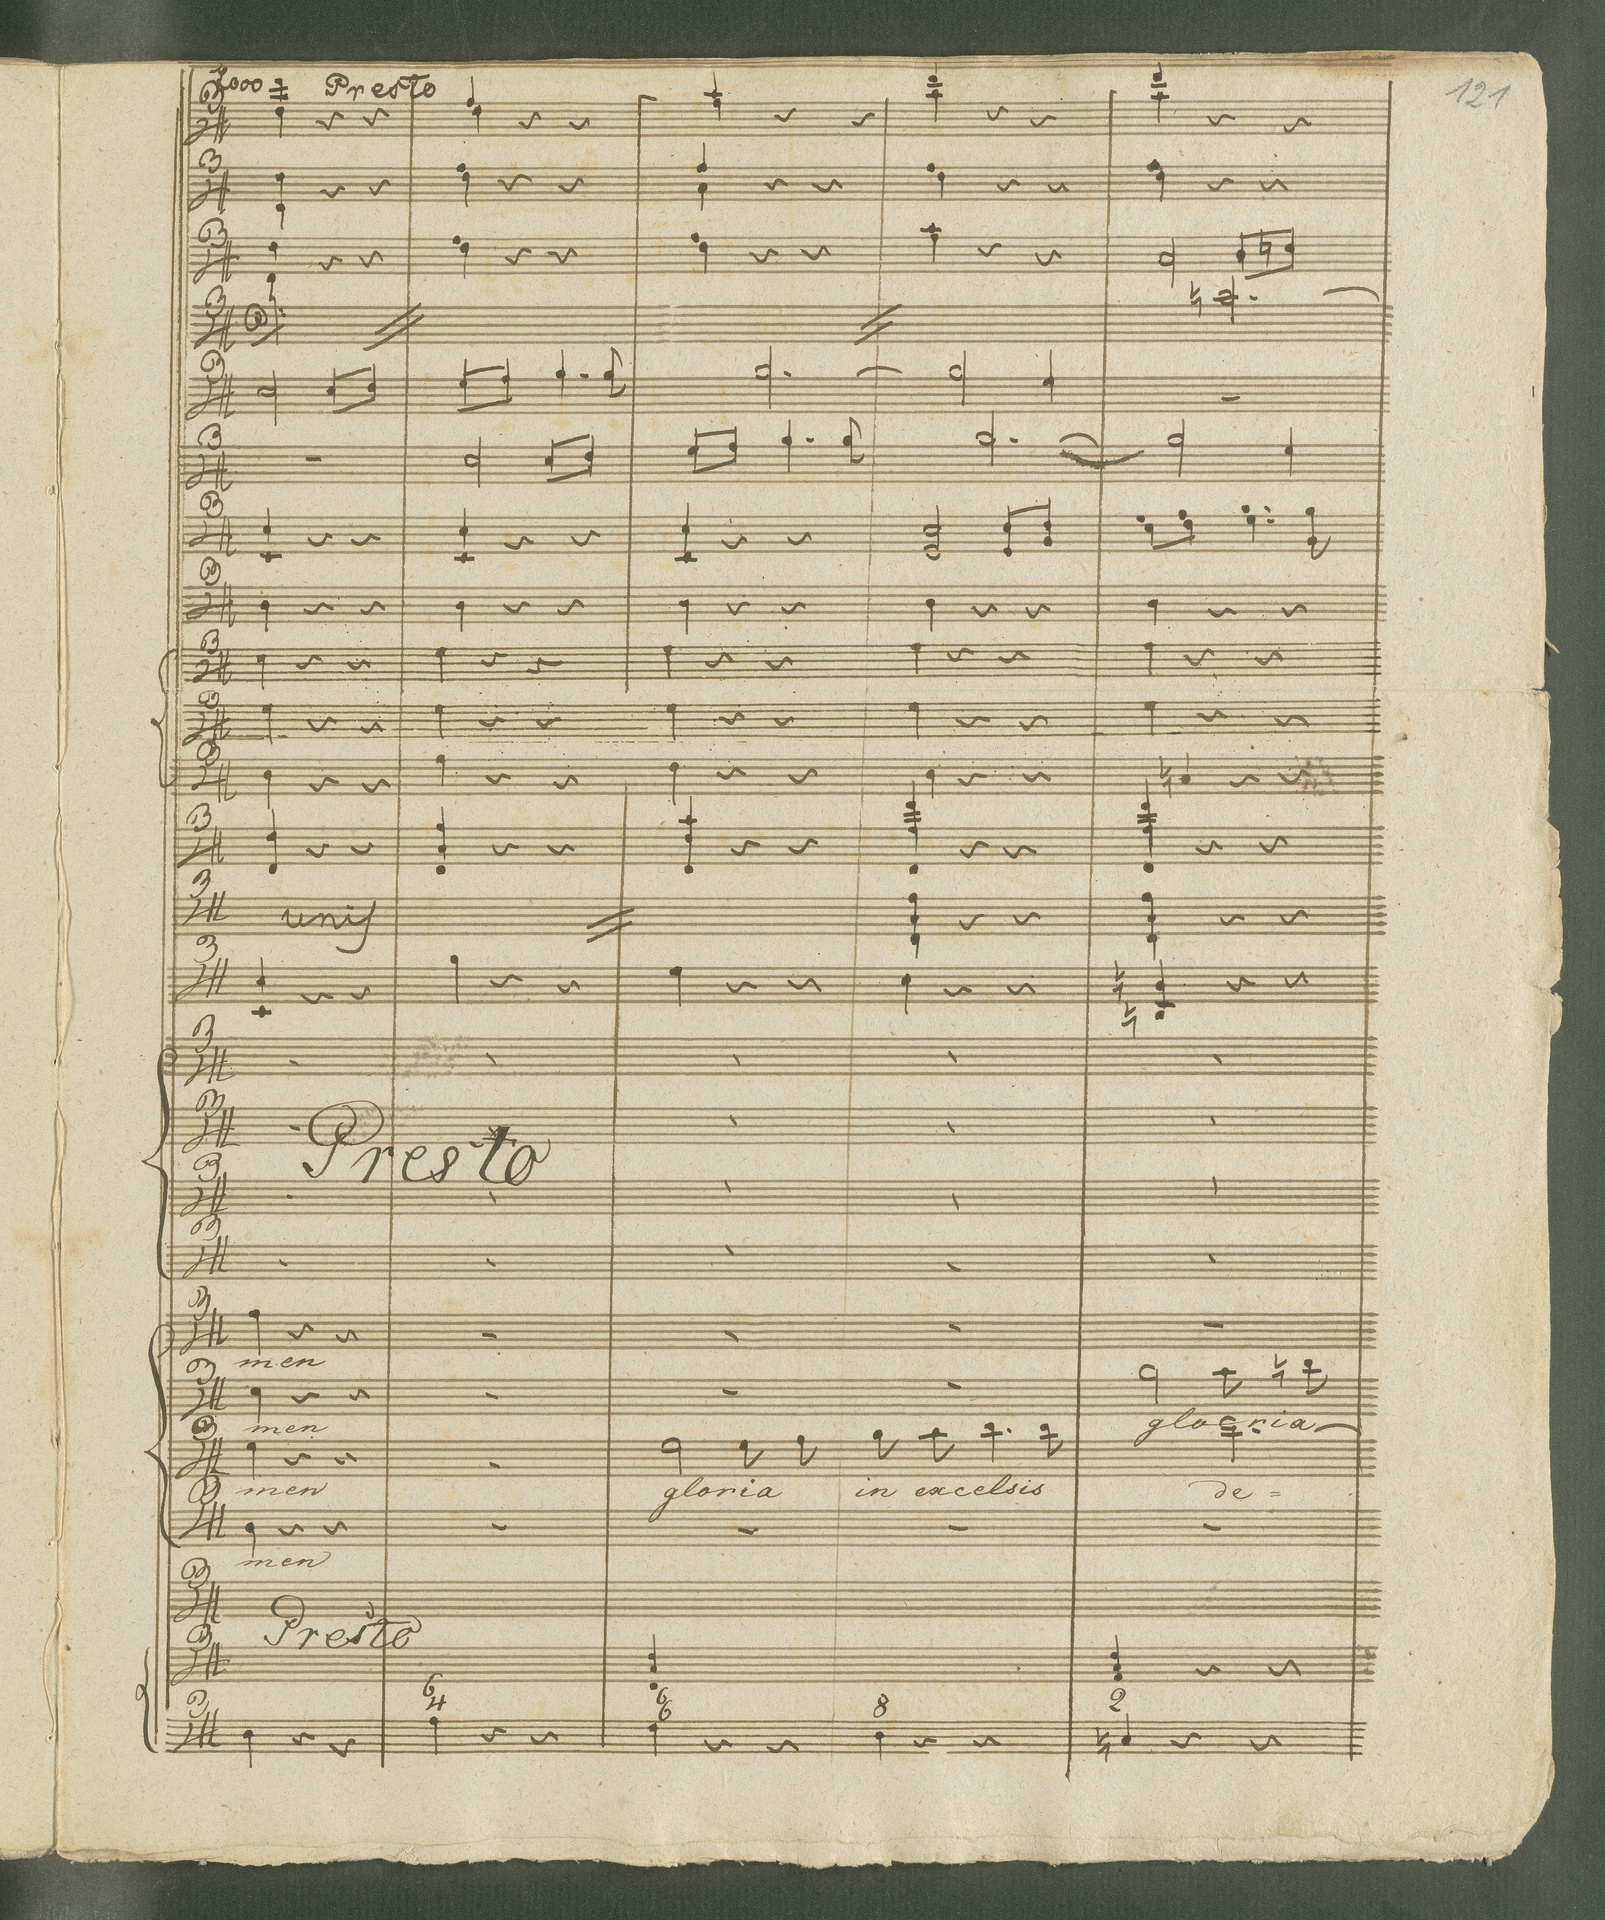 Presto
121
unis
Presto
men
men
gloria
men
gloria in excelsis de =
men
Presto
6 6 8 2
4 6